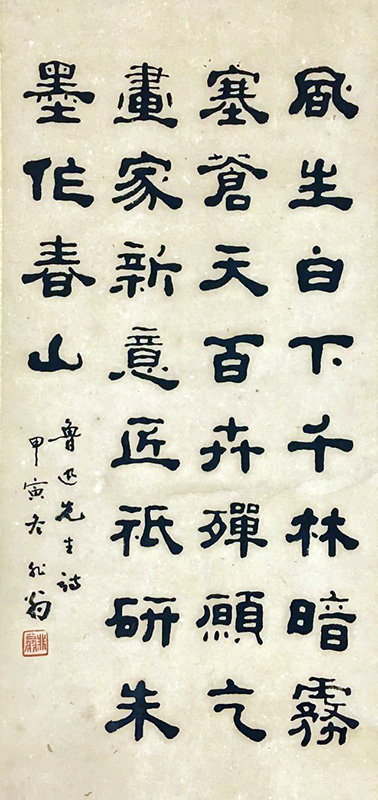 風生白下千林暗霧
塞蒼天百卉殫願乞
畫家新意匠祇研朱
墨作春山
魯迅先生詩
甲寅冬 非翁